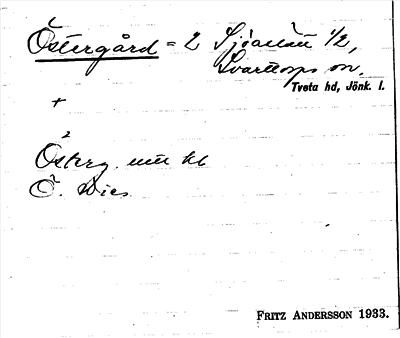 Östergård = 2 Sjöaslätt 1/2,
Svarttorps sn.
Tveta hd, Jönk. l.
+
Österg. utt kl
Ö. Dies
FRITZ ANDERSSON 1933.